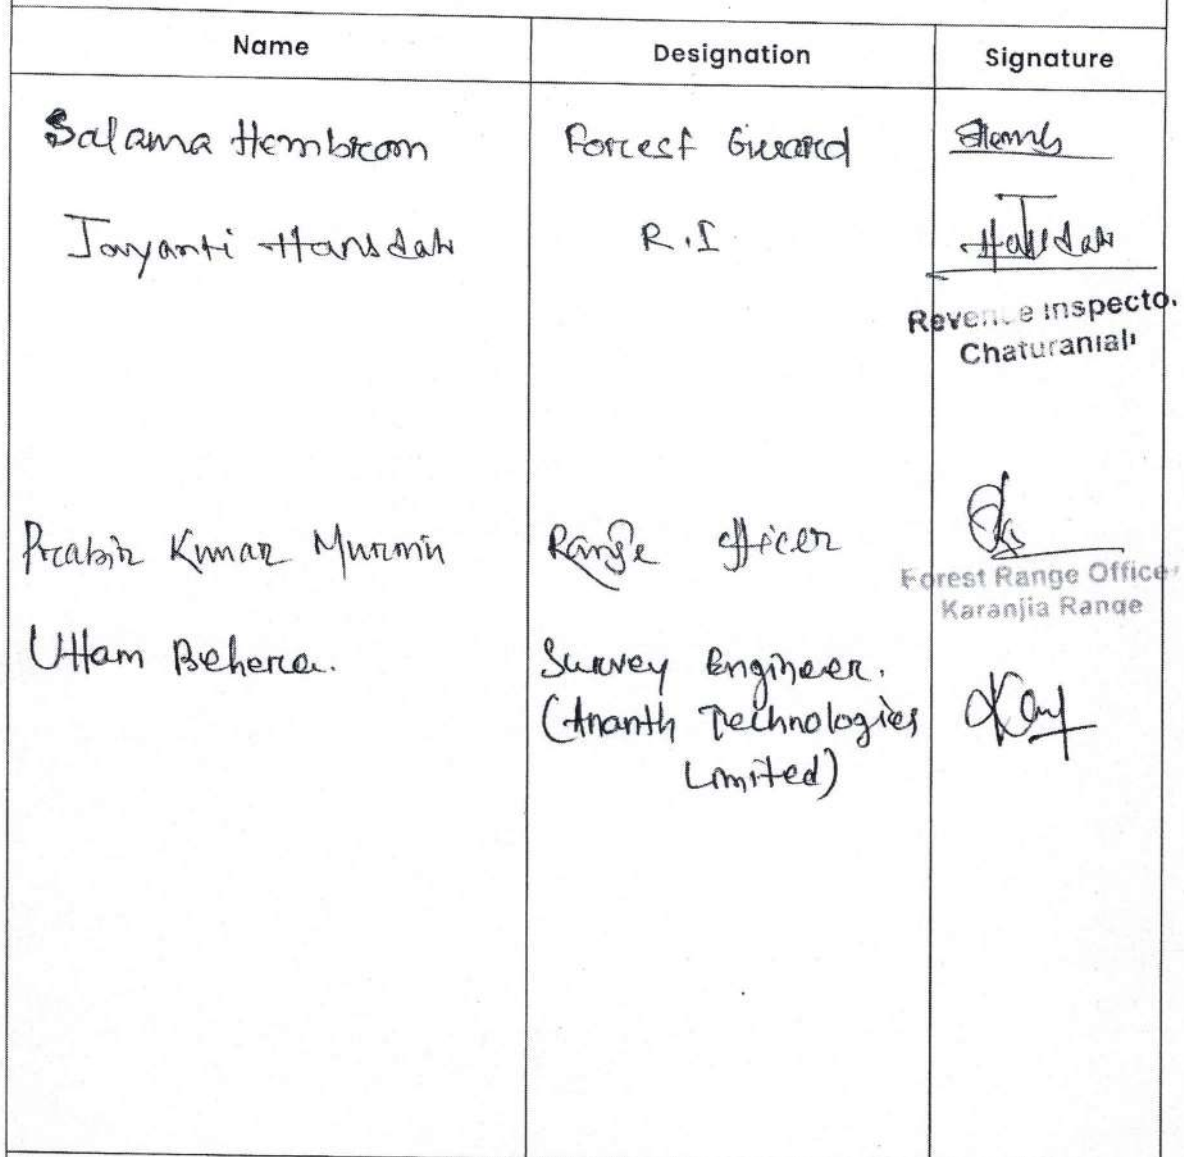 Name Designation Signature
Salama Hembrom Forest Guard
Jayanti Hansdah R.I Hansdah
Revenue Inspecto.
Chaturanjali
Prabir Kumar Murmu Range Officer
Forest Range Officer
Karanjia Range
Uttam Behera. Survey Engineer.
(Ananth Technologies
Limited)